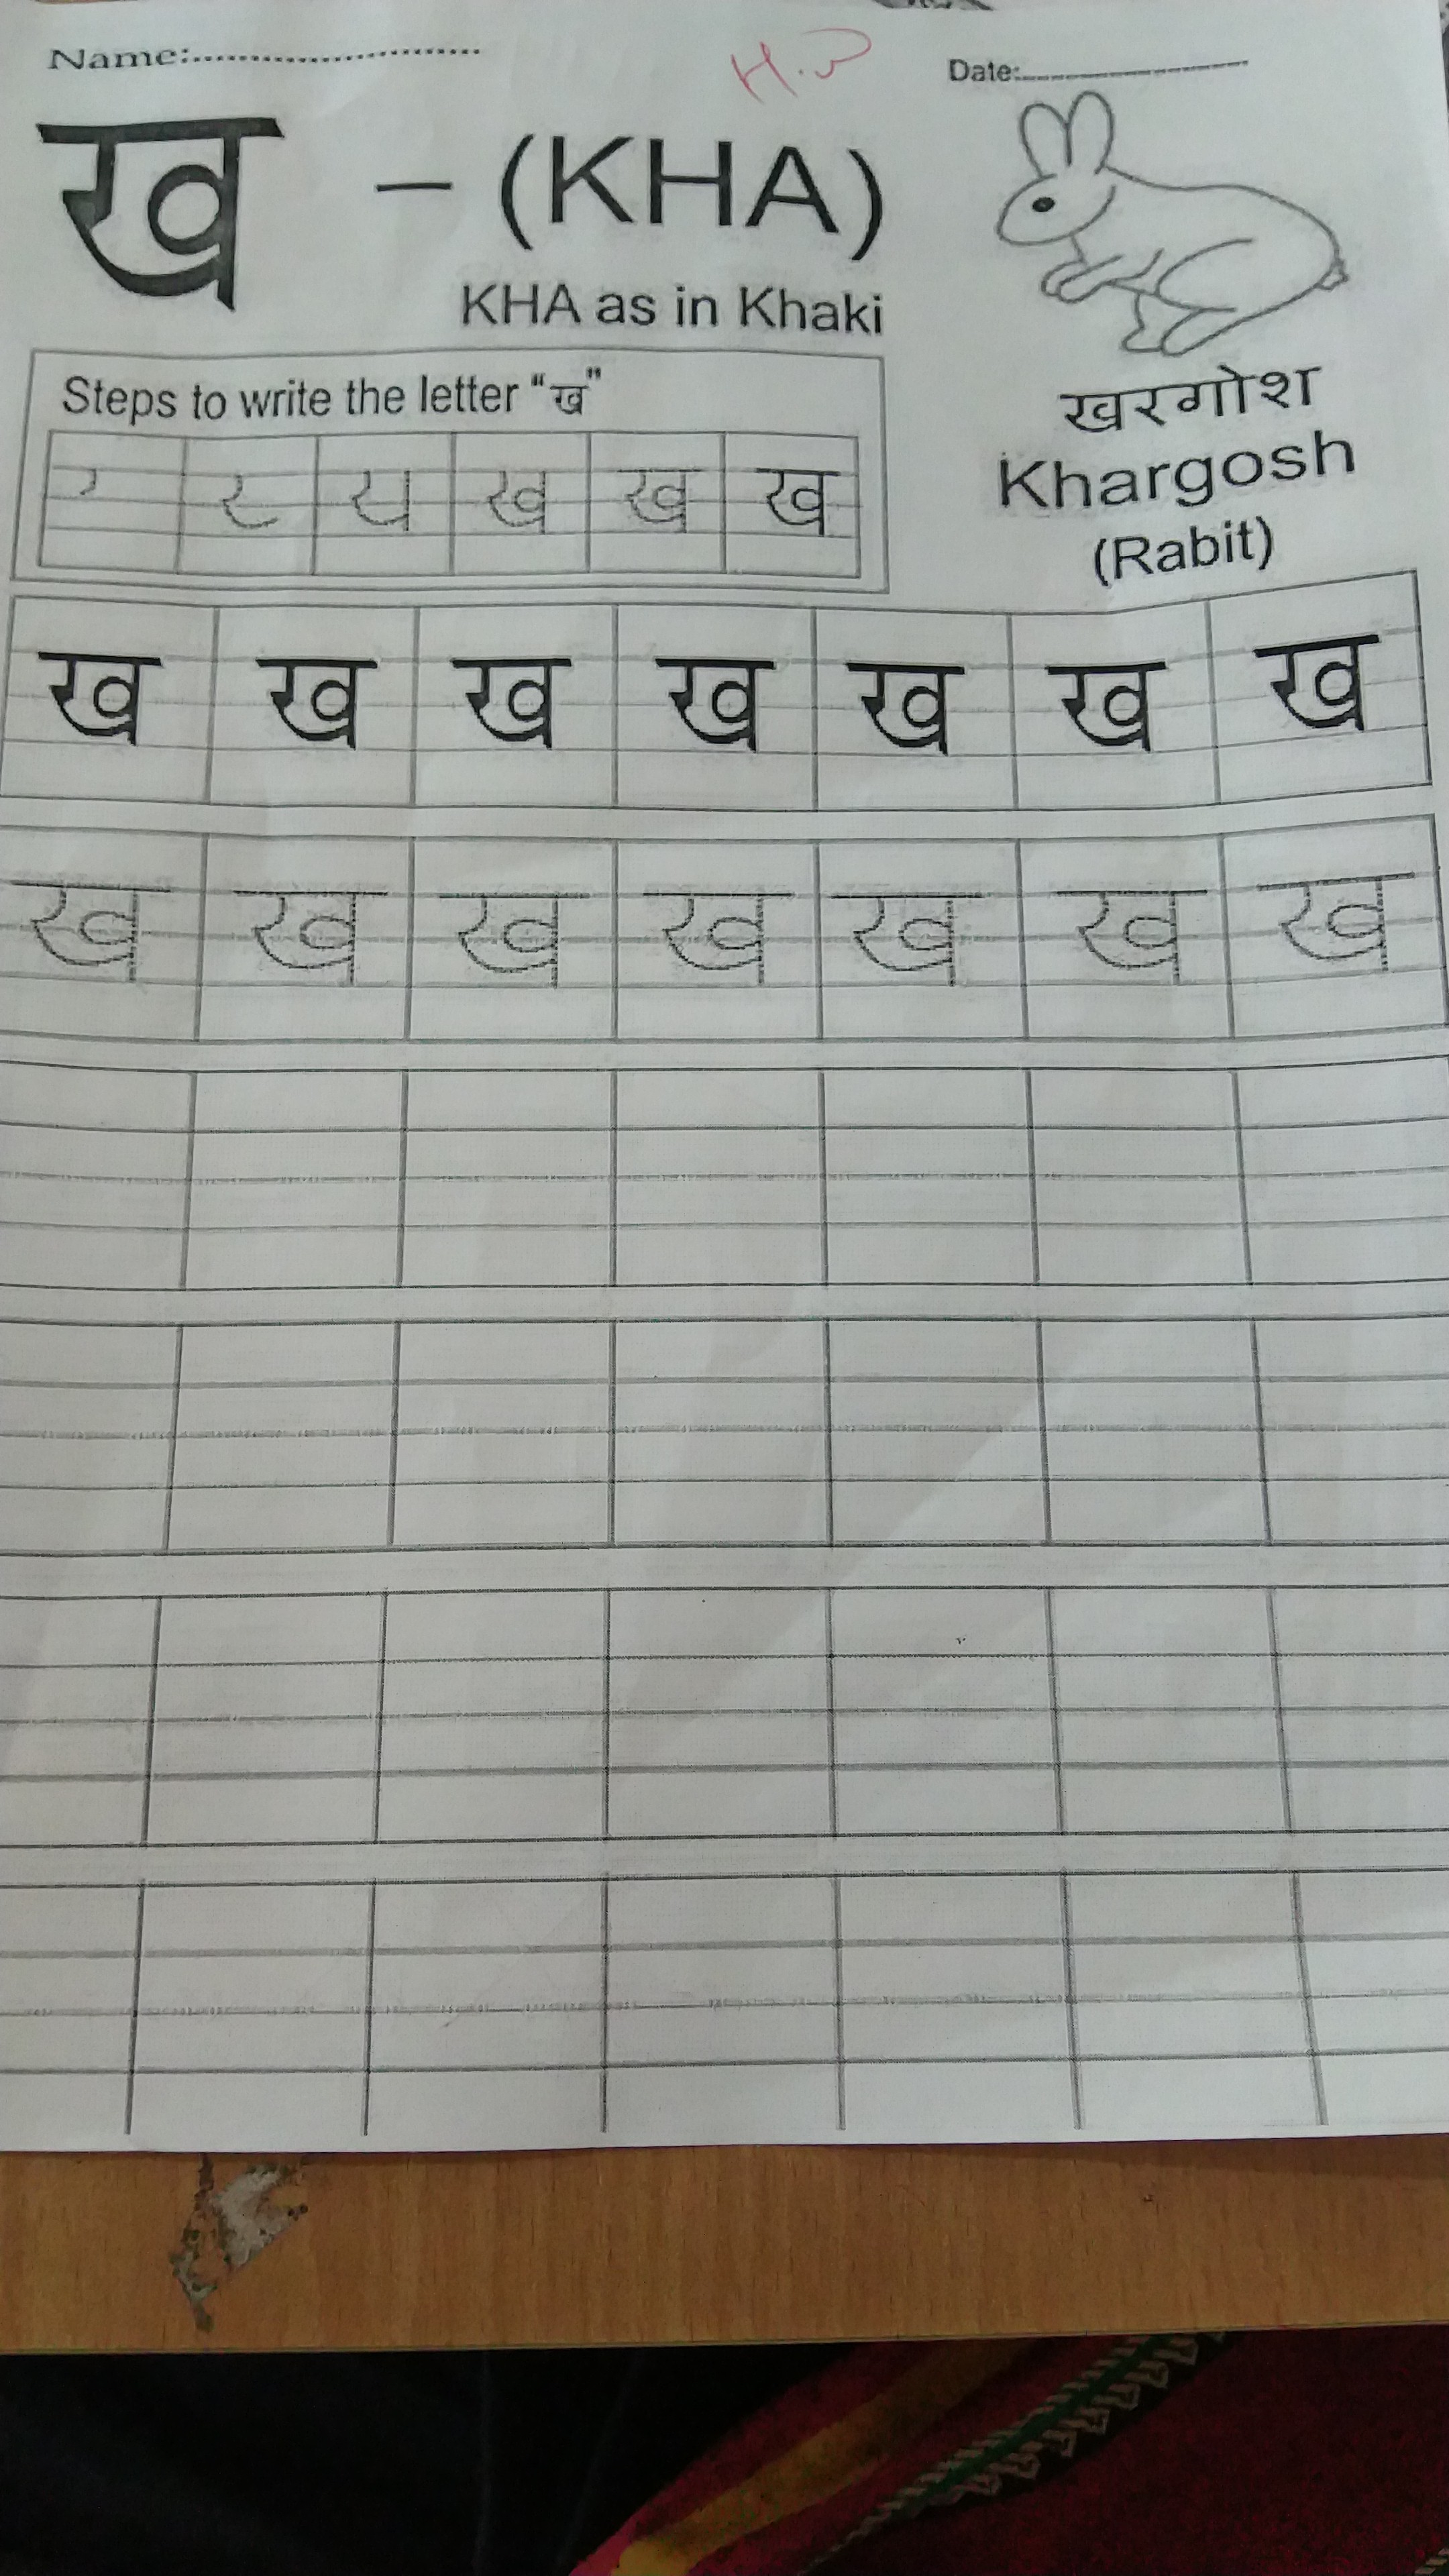 Name:................................
H.W
Date:........................
ख – (KHA)
KHA as in Khaki
Steps to write the letter "ख"
ख ख ख
खरगोश
Khargosh
(Rabit)
ख ख ख ख ख ख ख
ख ख ख ख ख ख ख